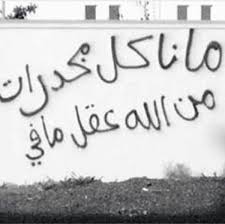 ما ناكل مخدرات
من الله عقل مافي